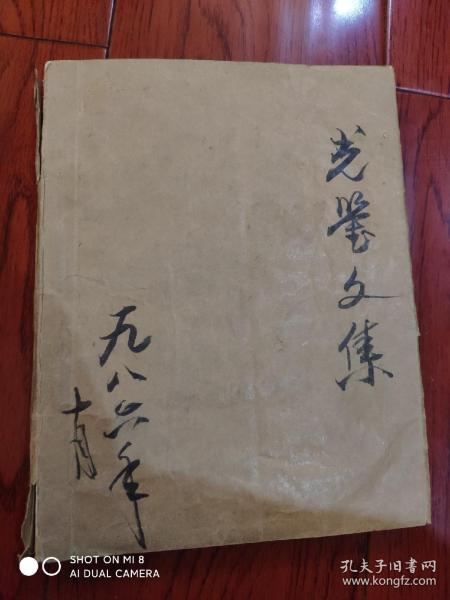 光鉴文集
九八六年
十月
SHOT ON MI 8
AI DUAL CAMERA
孔夫子旧书网
www.kongfz.com